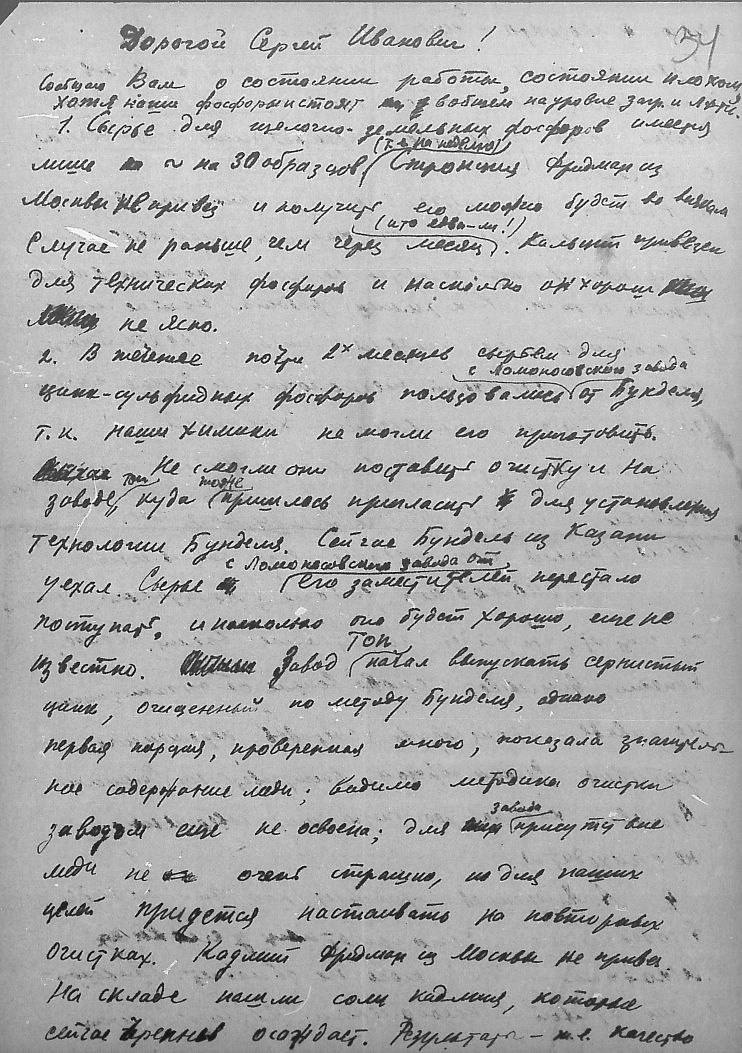 34
Дорогой Сергей Иванович!
Сообщаю Вам о состоянии работы, состоянии плохом,
хотя наши фосфоры стоят в общем на уровне загр. и лучш.
1. Сырье для щелочно-земельных фосфоров имеется
(т.е. на неделю)
лишь ~ на 30 образцов Стронция Фридман из
Москвы не привез и получить его можно будет во всяком
(что едва-ли!)
случае не раньше, чем через месяц. Кальцит привезен
для технических фосфоров и насколько он хорош
не ясно.
2. В течение почти 2х месяцев сырьем для
с Ломоносовского завода
цинк-сульфидных фосфоров пользовались от Бунделя,
т.к. наши химики не могли его приготовить.
Не смогли они поставить очистку и на
топ тоже
заводе, куда пришлось пригласить для установления
технологии Бунделя. Сейчас Бундель из Казани
с Ломоносовским завода от
уехал. Сырье его заместителей перестало
поступать, и насколько оно будет хорошо, еще не
ТОП
известно. Завод начал выпускать сернистый
цинк, очищенный по методу Бунделя, однако
первая порция, проверенная мною, показала значитель-
ное содержание меди; видимо методика очистки
завода
заводом еще не освоена; для присутствие
меди не очень страшно, но для наших
целей придется настаивать на повторных
очистках. Кадмий Фридман из Москвы не привез
На складе нашли соли кадмия, которые
сейчас осаждает. Результаты – т.е. качество